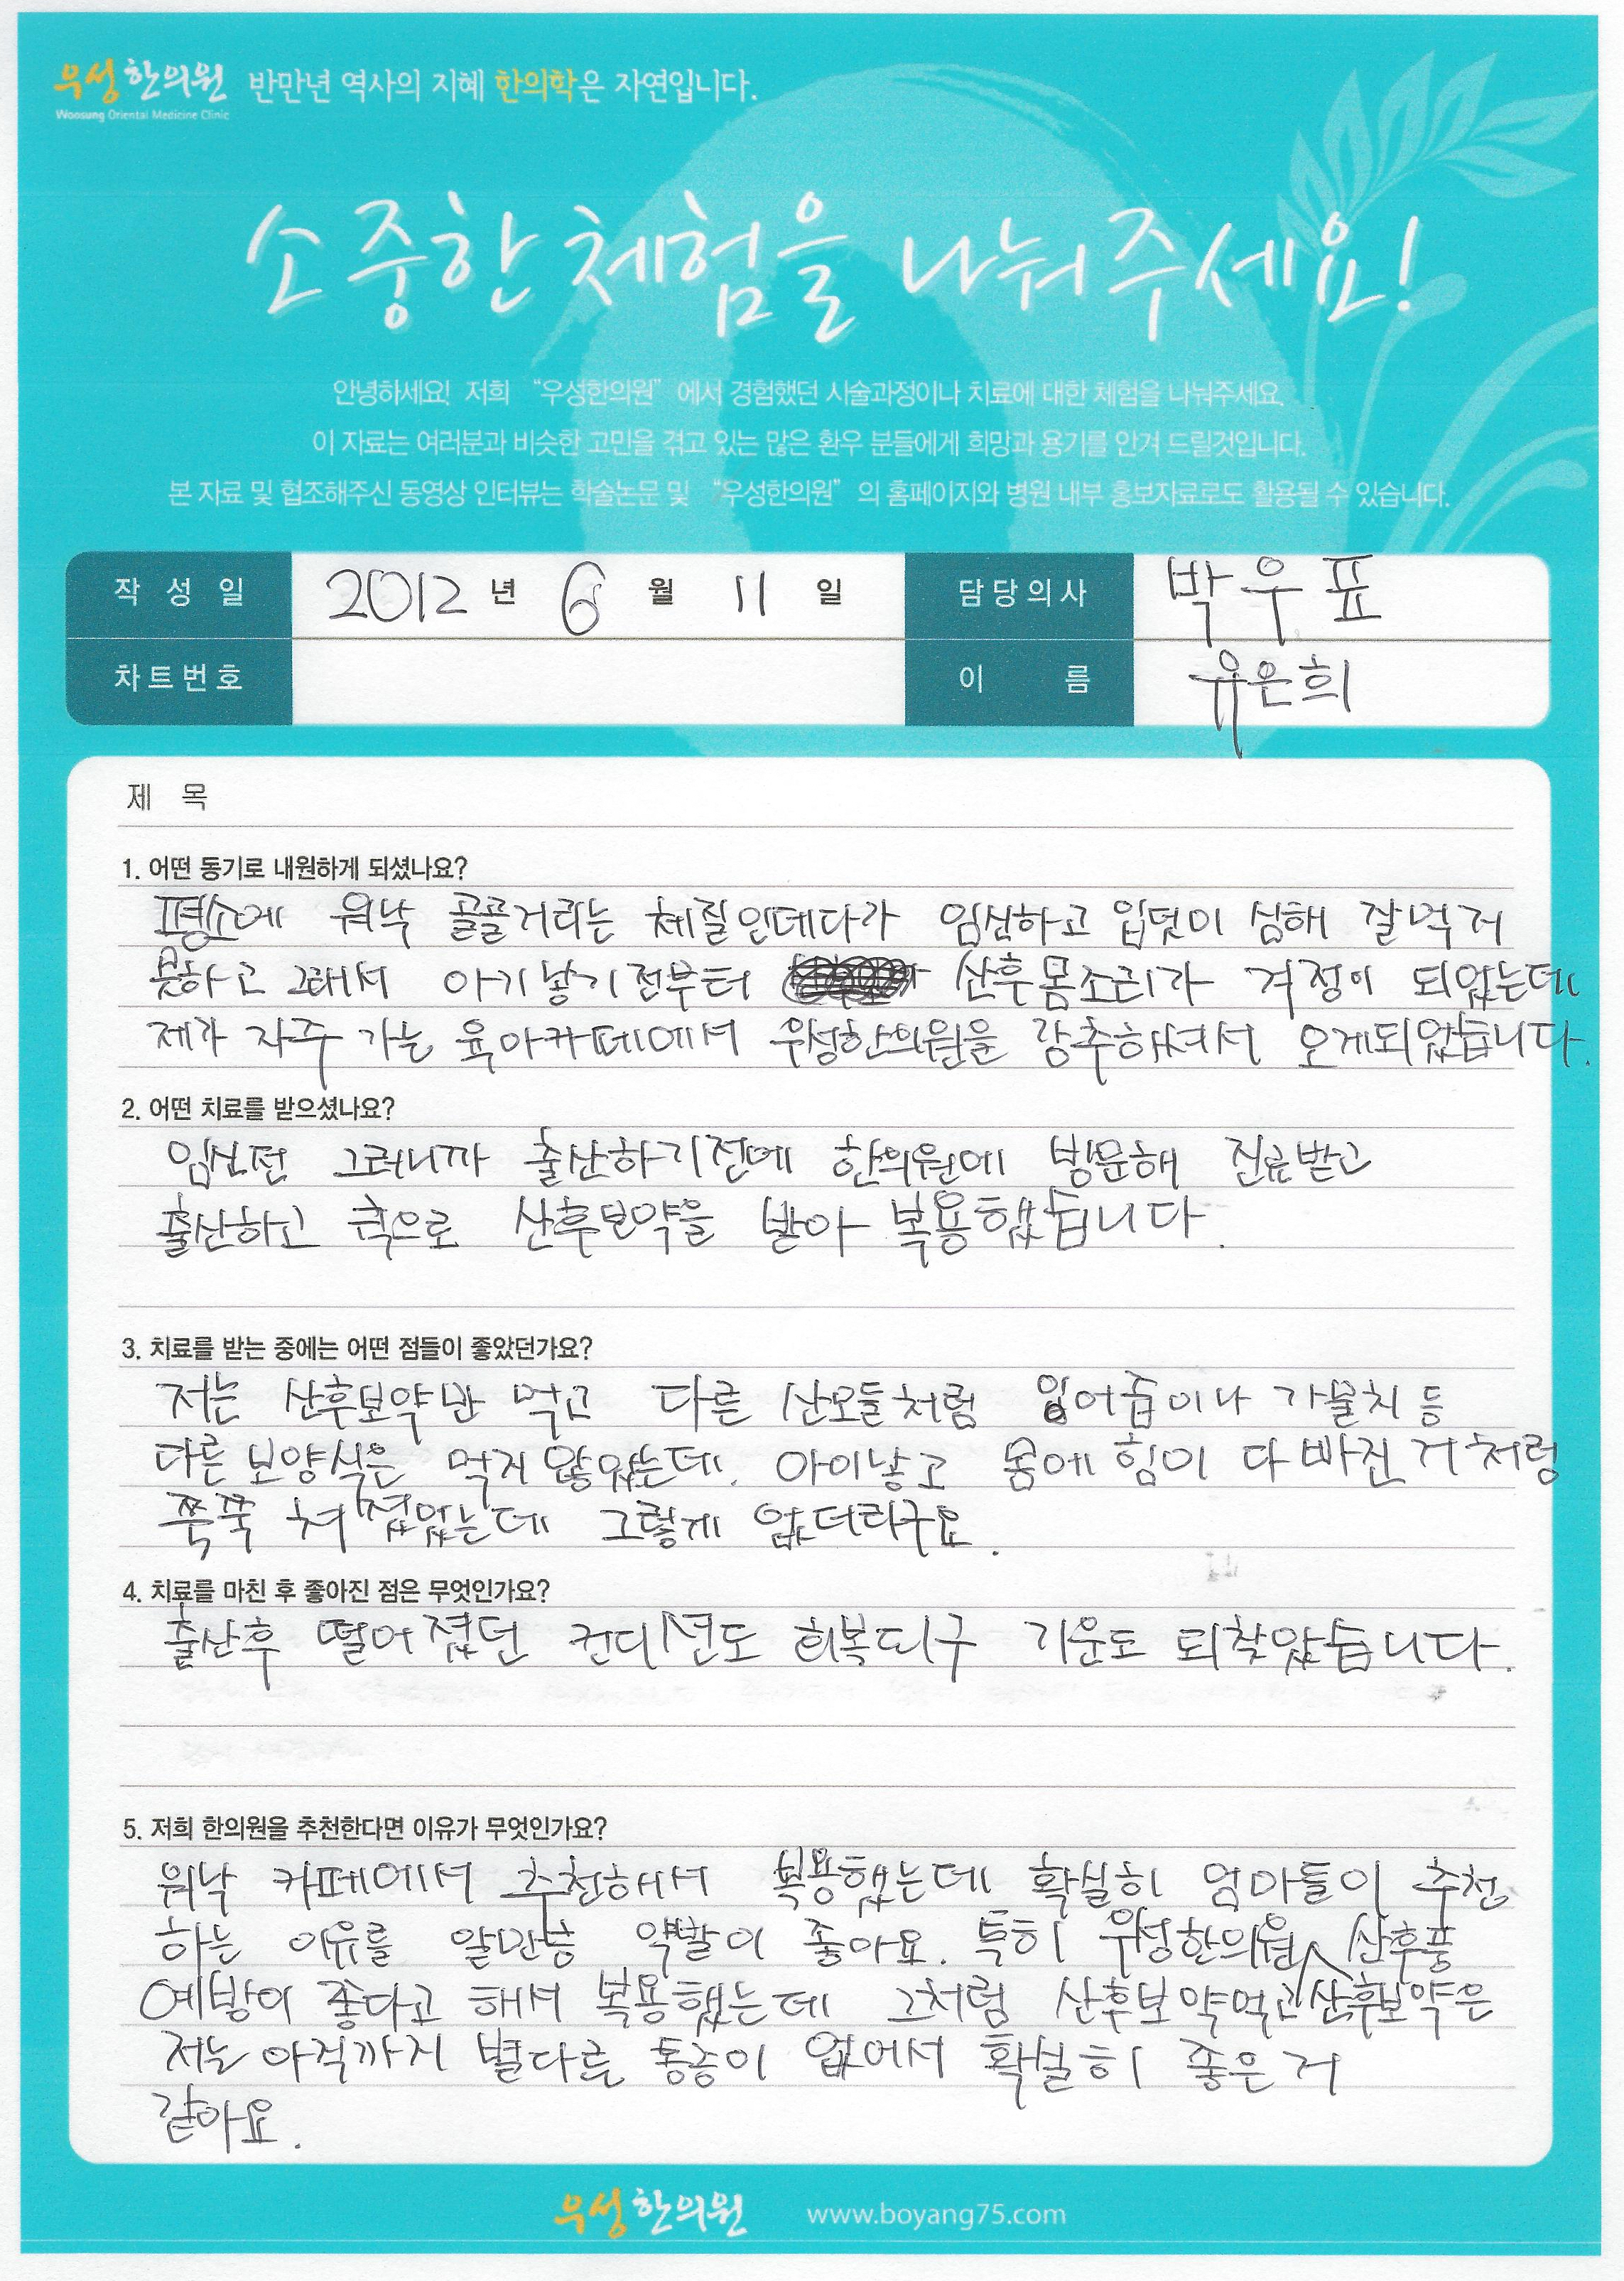 우성한의원 반만년 역사의 지혜 한의학은 자연입니다.
Woosung Oriental Medicine Clinic
소중한 체험을 나눠주세요!
안녕하세요! 저희 “우성한의원” 에서 경험했던 시술과정이나 치료에 대한 체험을 나눠주세요.
이 자료는 여러분과 비슷한 고민을 겪고 있는 많은 환우 분들에게 희망과 용기를 안겨 드릴것입니다.
본 자료 및 협조해주신 동영상 인터뷰는 학술논문 및 “우성한의원” 의 홈페이지와 병원 내부 홍보자료로도 활용될 수 있습니다.
작 성 일 2012 년 6 월 11 일 담당의사 박우표
차트번호 이 름 유은희
제 목
1. 어떤 동기로 내원하게 되셨나요?
평소에 워낙 골골거리는 체질인데다가 임신하고 입덧이 심해 잘먹지
못하고 그래서 아기낳기전부터 산후몸조리가 걱정이 되었는데
제가 자주 가는 육아카페에서 우성한의원을 강추하셔서 오게되었습니다.
2. 어떤 치료를 받으셨나요?
임신전 그러니까 출산하기전에 한의원에 방문해 진료받고
출산하고 측으로 산후보약을 받아 복용했습니다.
3. 치료를 받는 중에는 어떤 점들이 좋았던가요?
저는 산후보약만 먹고 다른 산모들처럼 잉어즙이나 가물치 등
다른 보양식은 먹지 않았는데. 아이낳고 몸에 힘이 다 빠진 거 처럼
쭉쭉 쳐졌었는데 그렇게 없더라구요.
4. 치료를 마친 후 좋아진 점은 무엇인가요?
출산후 떨어졌던 컨디션도 회복되구 기운도 되찾았습니다.
5. 저희 한의원을 추천한다면 이유가 무엇인가요?
워낙 카페에서 추천해서 복용했는데 확실히 엄마들이 추천
하는 이유를 알만큼 약발이 좋아요. 특히 우성한의원 산후보약은 산후풍
예방이 좋다고 해서 복용했는데 그처럼 산후보약먹고
저는 아직까지 별다른 통증이 없어서 확실히 좋은 거
같아요.
우성한의원 www.boyang75.com